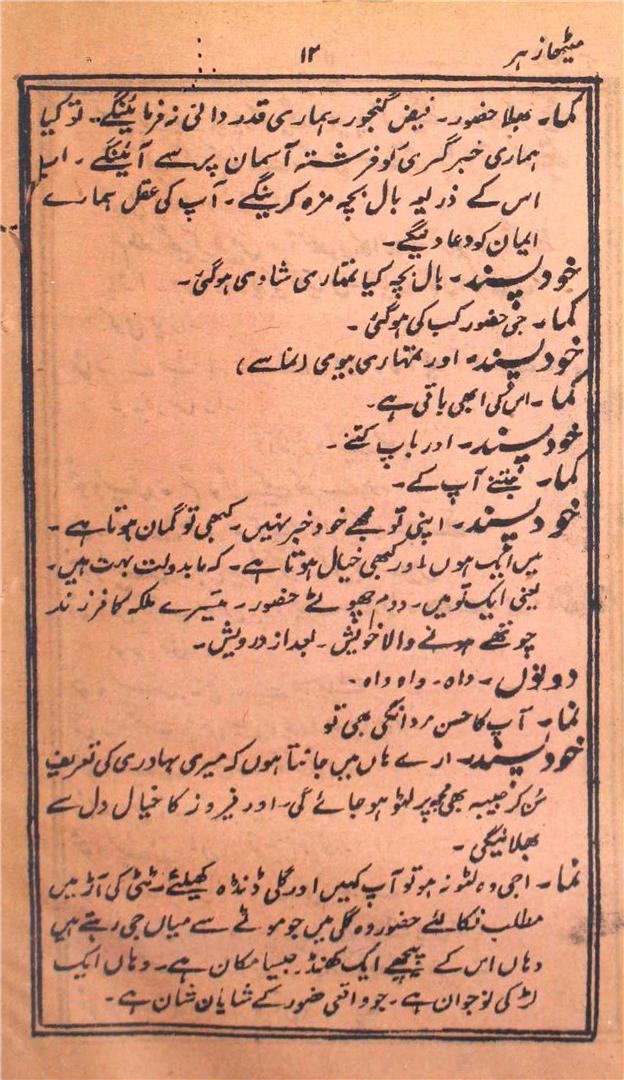 میٹھا زہر ۱۲
نما۔ بھلا حضور۔ فیض گنجور۔ ہماری قدر دانی نہ فرمائینگے۔ تو کیا
ہماری خبر گیری کو فرشتہ آسمان پر سے آئینگے۔
اس کے ذریعہ بال بچہ مزہ کرینگے۔ آپ کی عقل ہمارے
ایمان کو دعا دینگے۔
خود پسند۔ بال بچہ کیا تمہاری شادی ہوگئی۔
نما۔ جی حضور کب کی ہوگئی۔
خود پسند۔ اور تمہاری بیوی (نما سے)
نما۔ اس کی ابھی باقی ہے۔
خود پسند۔ اور باپ کتنے۔
نما۔ جتنے آپ کے۔
خود پسند۔ اپنی تو مجھے خود خبر نہیں۔ کبھی تو گمان ہوتا ہے۔
میں ایک ہوں اور کبھی خیال ہوتا ہے۔ کہ مابدولت بہت ہیں۔
یعنی ایک تو میں۔ دوم چھوٹے حضور۔ تیسرے ملکہ کا فرزند
چوتھے ہونے والا خویش۔ بعد از درویش۔
دونوں۔ واہ۔ واہ واہ۔
نما۔ آپ کا حسن مردانگی بھی تو
خود پسند۔ ارے ہاں میں جانتا ہوں کہ میری بہادری کی تعریف
سُن کر حبیبہ بھی مجھ پر لٹو ہو جائے گی۔ اور فیروز کا خیال دل سے
بھلائیگی۔
نما۔ اجی وہ لٹو نہ ہو تو آپ کہیں اور گلی ڈنڈہ کھیلئے ٹٹی کی آڑ میں
مطلب نکالئے حضور وہ گلی میں جو موٹے سے میاں جی رہتے ہیں
وہاں اس کے پیچھے ایک کھنڈر جیسا مکان ہے۔ وہاں ایک
لڑکی نوجوان ہے۔ جو واقعی حضور کے شایان شان ہے۔